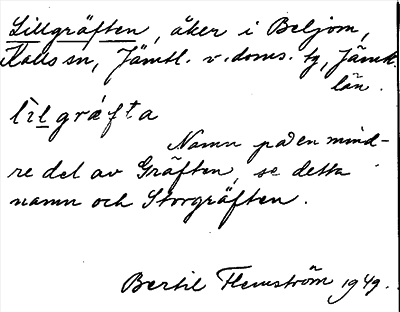 Lillgräften, åker i Beljom,
Halls sn, Jämtl. v. doms. tg, Jämtl.
län.
lìlgráfta
Namn på en mind-
re del av Gräften, se detta
namn och Storgräften.
Bertil Flemström 1949.